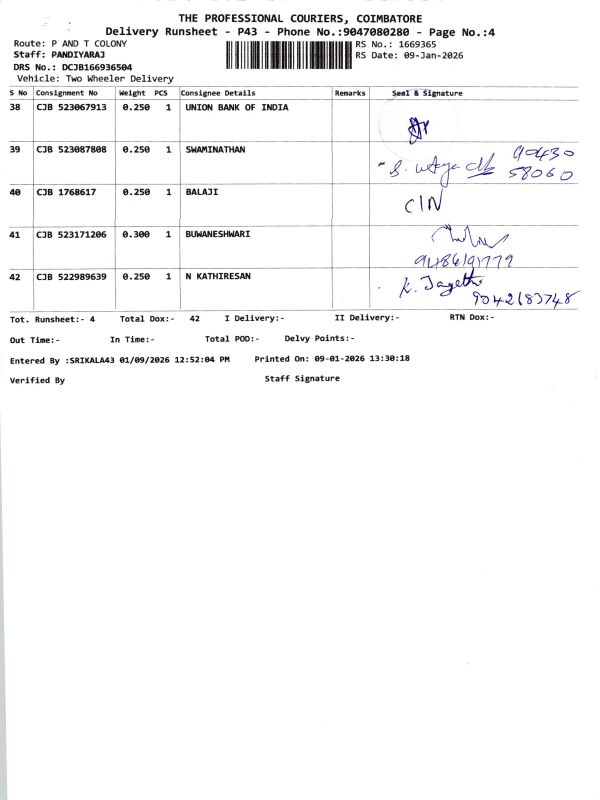 THE PROFESSIONAL COURIERS, COIMBATORE
Delivery Runsheet - P43 - Phone No.:9047080280 - Page No.:4
Route: P AND T COLONY
RS No.: 1669365
Staff: PANDIYARAJ
RS Date: 09-Jan-2026
DRS No.: DCJB166936504
Vehicle: Two Wheeler Delivery
S No Consignment No Weight PCS Consignee Details Remarks Seal & Signature
38 CJB 523067913 0.250 1 UNION BANK OF INDIA
39 CJB 523087808 0.250 1 SWAMINATHAN 90430
58060
40 CJB 1768617 0.250 1 BALAJI C/N
41 CJB 523171206 0.300 1 BUWANESHWARI
9486191779
42 CJB 522989639 0.250 1 N KATHIRESAN K.
9042183748
Tot. Runsheet:- 4 Total Dox:- 42 I Delivery:- II Delivery:- RTN Dox:-
Out Time:- In Time:- Total POD:- Delvy Points:-
Entered By :SRIKALA43 01/09/2026 12:52:04 PM Printed On: 09-01-2026 13:30:18
Verified By Staff Signature